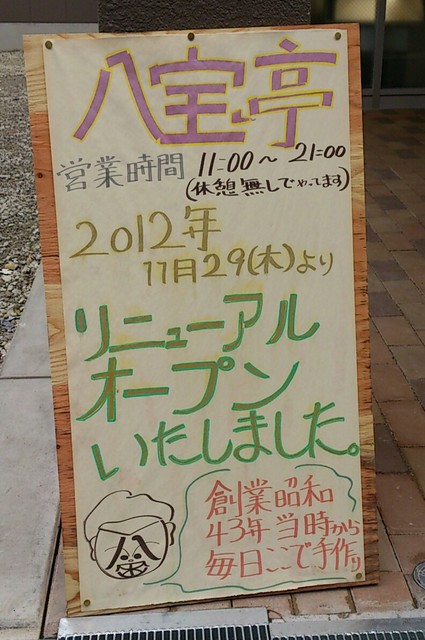 八宝亭
営業時間 11:00〜21:00
(休憩無しでやってます)
2012年
11月29(木)より
リニューアル
オープン
いたしました。
創業昭和
43年当時から
毎日ここで手作り
八